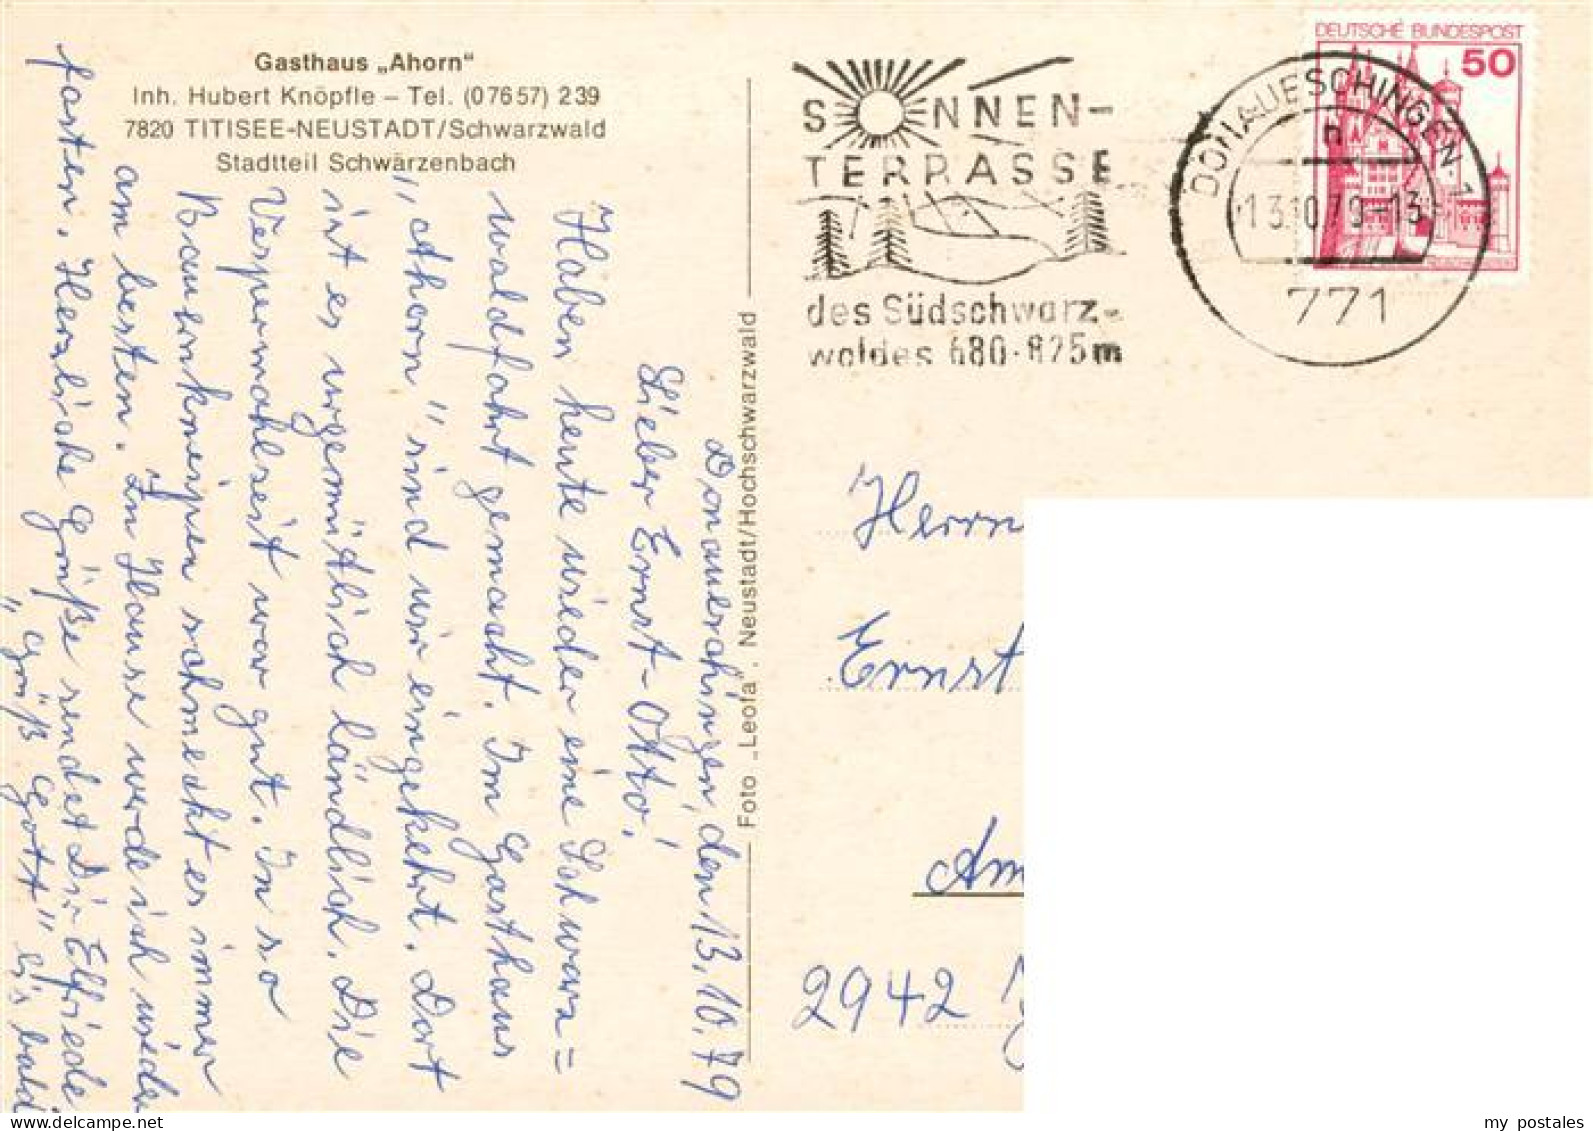 Gasthaus „Ahorn“
Inh. Hubert Knöpfle – Tel. (07657) 239
7820 TITISEE-NEUSTADT/Schwarzwald
Stadtteil Schwärzenbach
Donaueschingen, den 13.10.79
Lieber Ernst-Otto!
Haben heute wieder eine Schwarz=
waldfahrt gemacht. Im Gasthaus
„Ahorn“ sind wir eingekehrt. Dort
ist es urgemütlich ländlich. Die
Vespermahlzeit war gut. In so
Bauernkneipen schmeckt es immer
am besten. Zu Hause werde ich wieder
fasten. Herzliche Grüße sendet Dir Elfriede
„Grüß Gott“ bis bald
Foto „Leofa“, Neustadt/Hochschwarzwald
SONNEN-
TERRASSE
des Südschwarz-
waldes 680-825m
DONAUESCHINGEN 1
n
13.10.79-13
771
DEUTSCHE BUNDESPOST
50
Herrn
Ernst
Am
2942 J
my postales